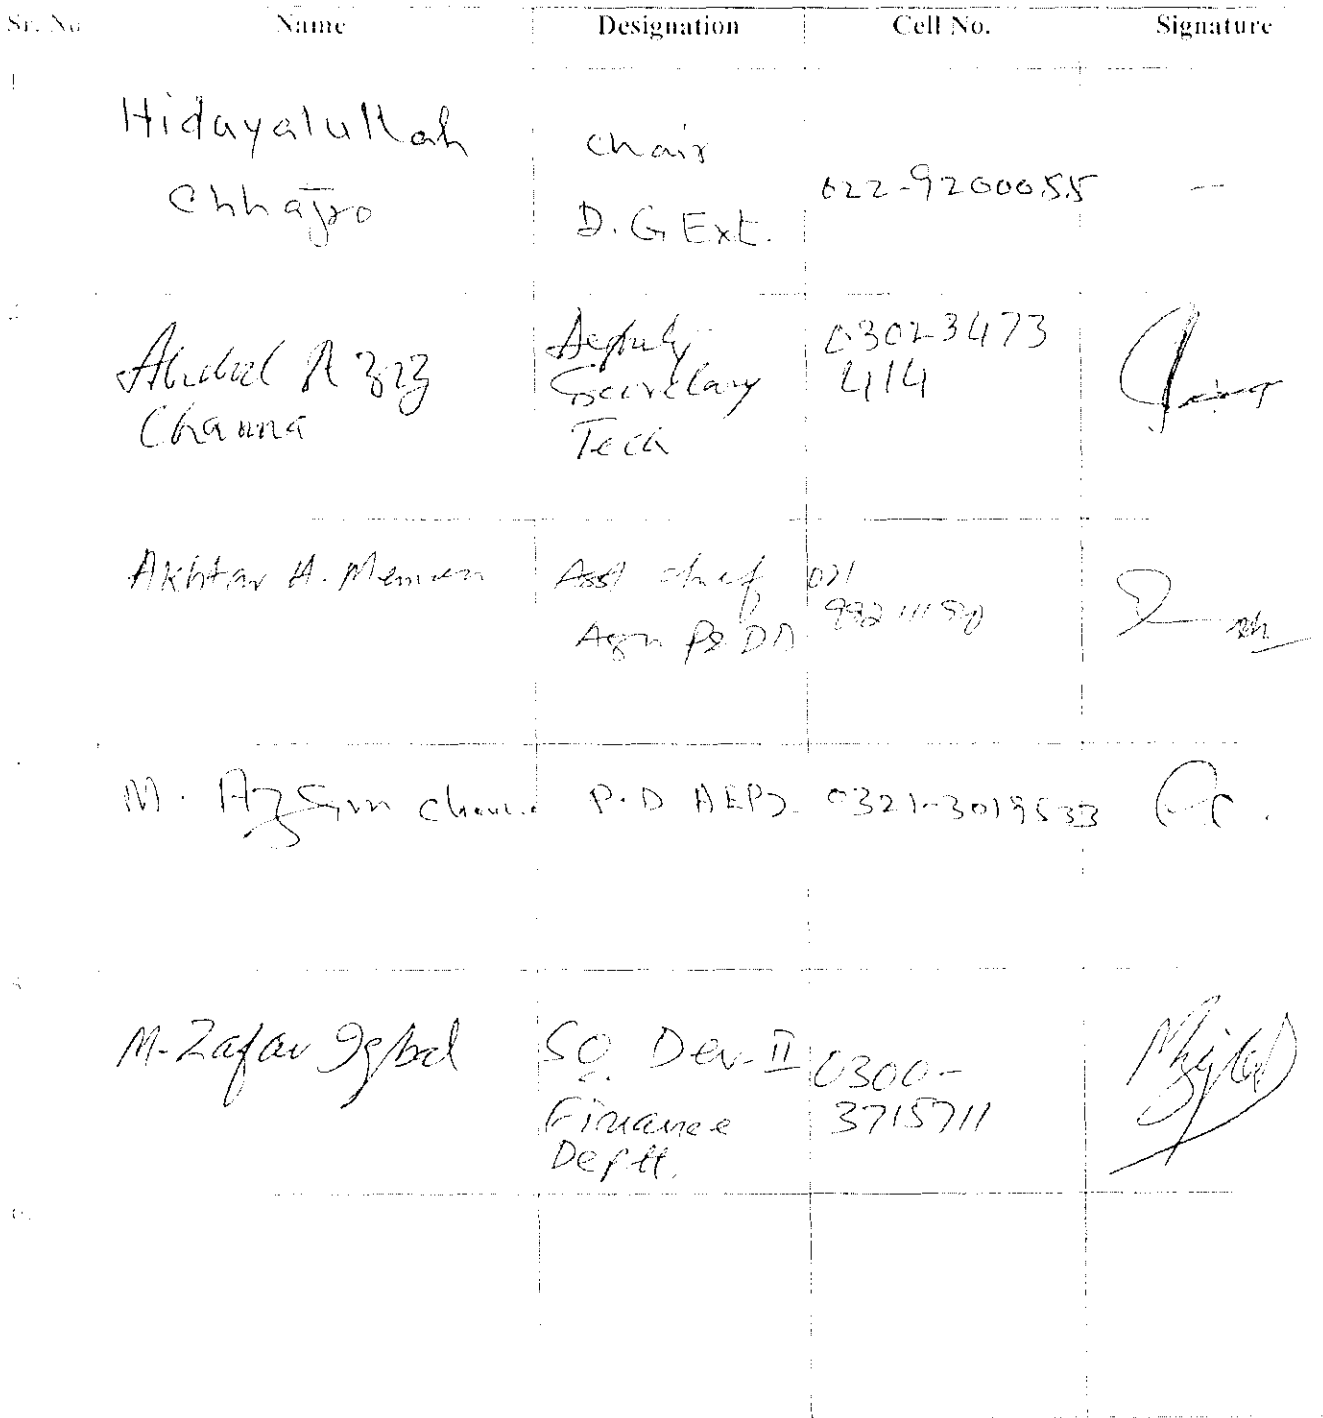 Sr. No Name Designation Cell No. Signature
1
Hidayatullah
Chhajro
Chair
D. G Ext.
022-9200055
—
2
Abdul Aziz
Channa
Deputy
Secretary
Tech
0302-3473
414
Akhtar H. Memon
Asst chief
Agri P&DD
021
M. Azeem
P.D AEP
0321-3019533
5
M-Zafar Iqbal
SO. Dev-II
Finance
Deptt.
0300-
3715711
6.